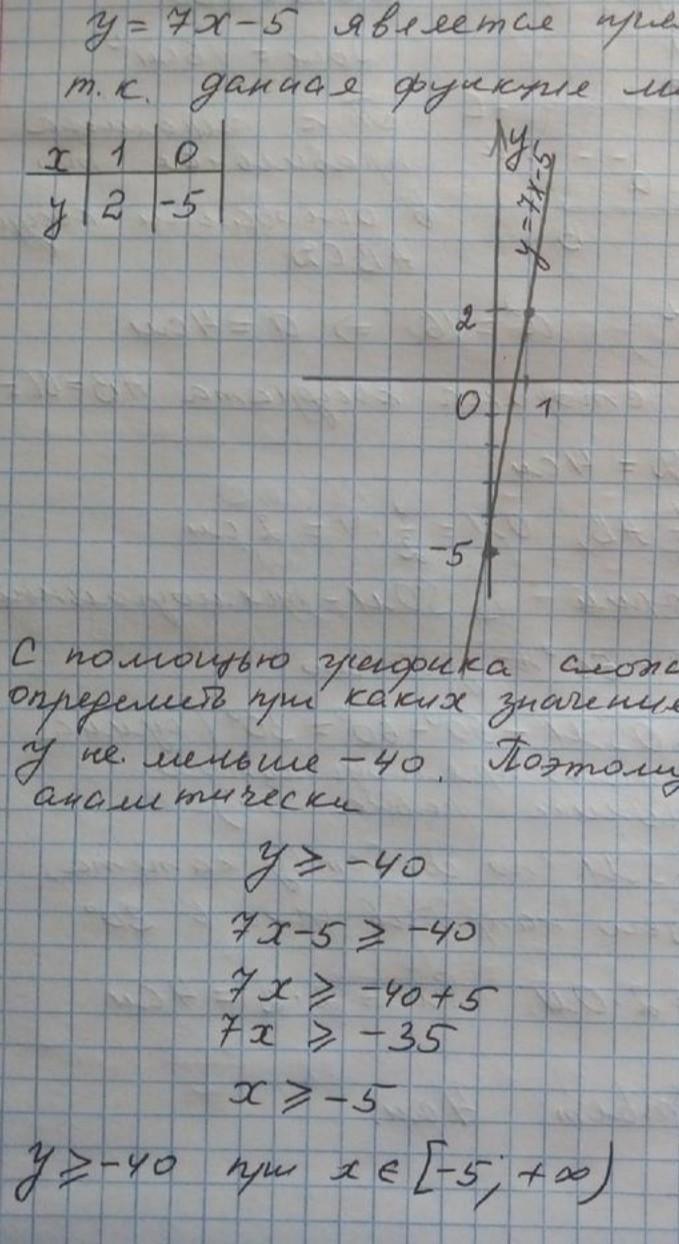 y = 7x - 5 является
т.к. данная функция
x | 1 | 0
y | 2 | -5
y
y = 7x - 5
2
0
1
-5
С помощью графика
определить при каких
y не меньше -40. Поэтому
аналитически
y ⩾ -40
7x - 5 ⩾ -40
7x ⩾ -40 + 5
7x ⩾ -35
x ⩾ -5
y ⩾ -40 при x ∈ [-5; +∞)